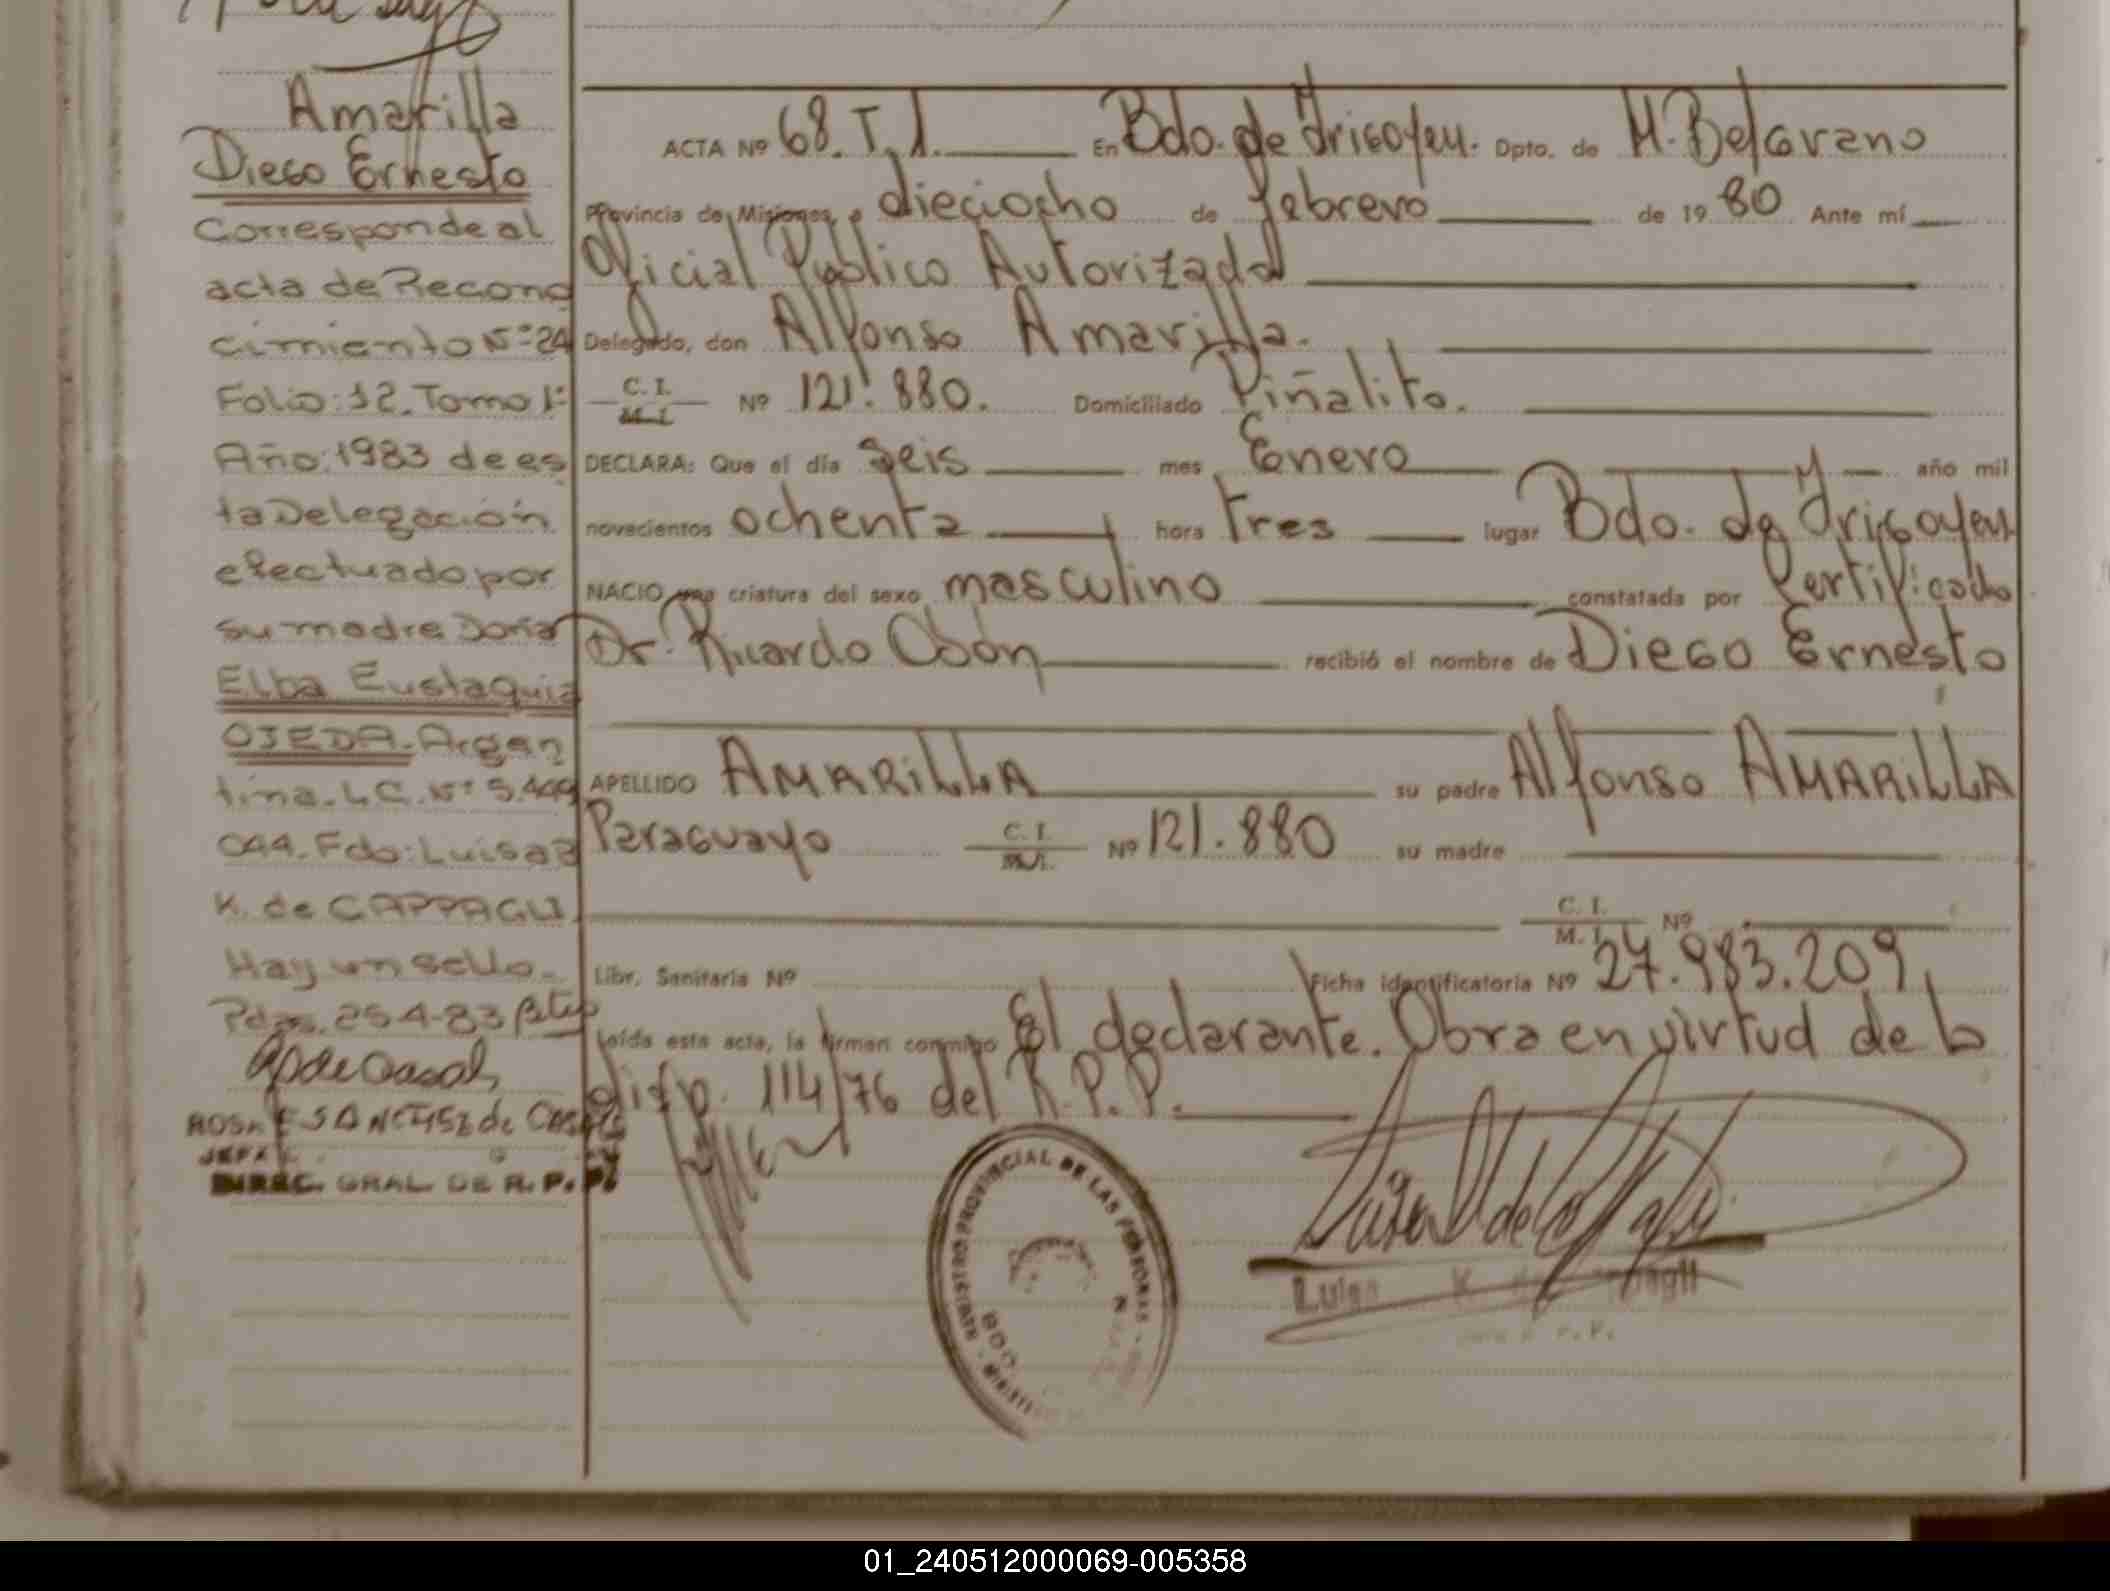 Amarilla
Diego Ernesto
Corresponde al
acta de Recono
cimiento Nº 24
Folio: 12. Tomo 1º
Año: 1983 de es
ta Delegación
efectuado por
su madre Doña
Elba Eustaquia
OJEDA. Argen
tina. L.C. Nº 5.449
044. Fdo: Luisa
K. de CAPPAGLI
Hay un sello.
Pdas. 25-4-83
ROSA E SANCHEZ de
JEFA
DIREC. GRAL. DE R. P. P.
ACTA Nº 68. T. 1. En Bdo. de Irigoyen. Dpto. de M. Belgrano
Provincia de Misiones, a dieciocho de febrero de 19 80 Ante mí
Oficial Público Autorizado
Delegado, don Alfonso Amarilla.
C. I. M. I. Nº 121.880. Domiciliado Piñalito.
DECLARA: Que el día Seis mes Enero año mil
novecientos ochenta hora tres lugar Bdo. de Irigoyen
NACIO una criatura del sexo masculino constatada por Certificado
Dr. Ricardo Obón recibió el nombre de Diego Ernesto
APELLIDO AMARILLA su padre Alfonso AMARILLA
Paraguayo C. I. M. I. Nº 121.880 su madre
C. I. M. I. Nº
Libr. Sanitaria Nº Ficha identificatoria Nº 27.983.209
Leída esta acta, la firman conmigo El declarante. Obra en virtud de la
disp. 114/76 del R.P.P.
REGISTRO PROVINCIAL DE LAS PERSONAS
BDO
Luisa K. de
01_240512000069-005358